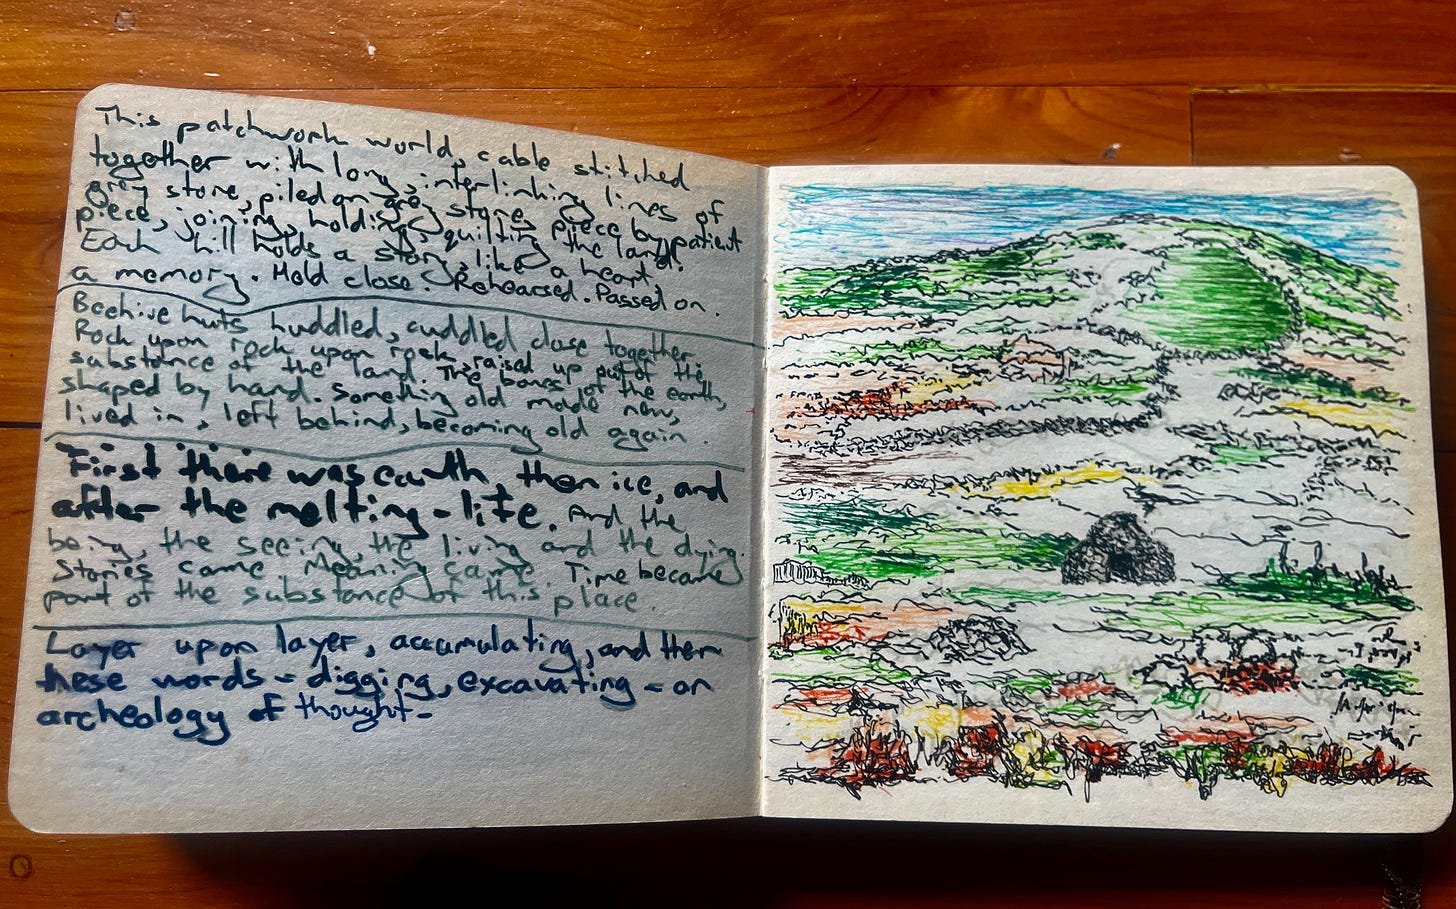 This patchwork world, cable stitched
together with long, interlinking lines of
grey stone, piled on grey stone, piece by patient
piece, joining, holding, quilting the land.
Each hill holds a story, like a heart,
a memory. Held close. Rehearsed. Passed on.
Beehive huts huddled, cuddled close together,
Rock upon rock upon rock, raised up out of the
substance of the land. The bones of the earth,
shaped by hand. Something old made new,
lived in, left behind, becoming old again.
First there was earth, then ice, and
after the melting - life. And the
being, the seeing, the living and the dying.
Stories came. Meaning came. Time became
part of the substance of this place.
Layer upon layer, accumulating, and then
these words - digging, excavating - an
archeology of thought -